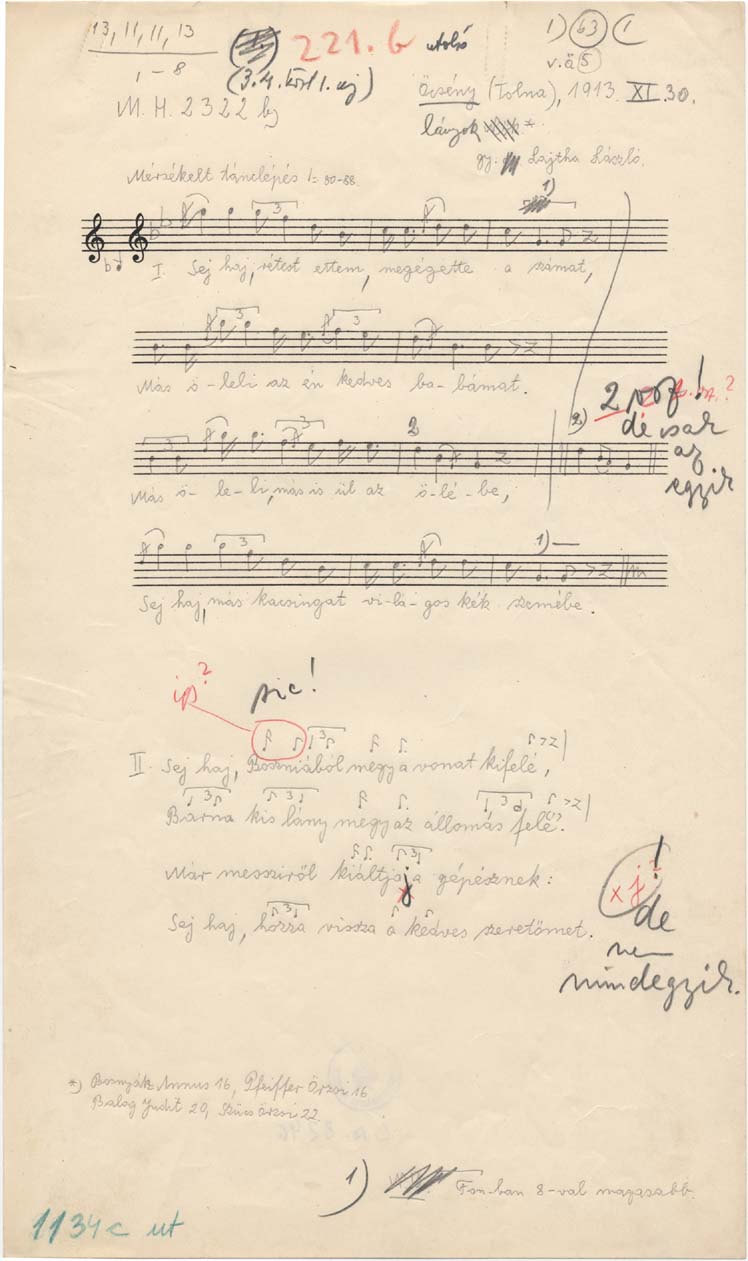 13, 11, 11, 13
1 - 8
221. b utolsó
1) 63 (1
v.ä 5
M. H. 2322 b)
Őcsény (Tolna), 1913. XI. 30.
lányok *
gy. Lajtha László.
Mérsékelt tánclépés
1)
I. Sej haj, rétest ettem, megégette a számat,
3
Más ö-leli az én kedves ba-bámat.
3 3
2 vsz!
de csak
az
egyik
2
2)
Más ö-le-li, más is ül az ö-lé-be,
3 3
1)
Sej haj, más kacsingat vi-lá-gos kék szemébe.
3
ip? sic!
II. Sej haj, Boszniából megy a vonat kifelé,
Barna kis lány megy az állomás felé.
Már messziről kiáltja j a gépésznek:
Sej haj, hozza vissza a kedves szeretőmet.
x j !
de
nem
mindegyik.
*) Bosnyák Annus 16, Pfeiffer Örzsi 16
Balog Judit 20, Szücs Örzsi 22.
1) Fon-ban 8-val magasabb.
1134c ut